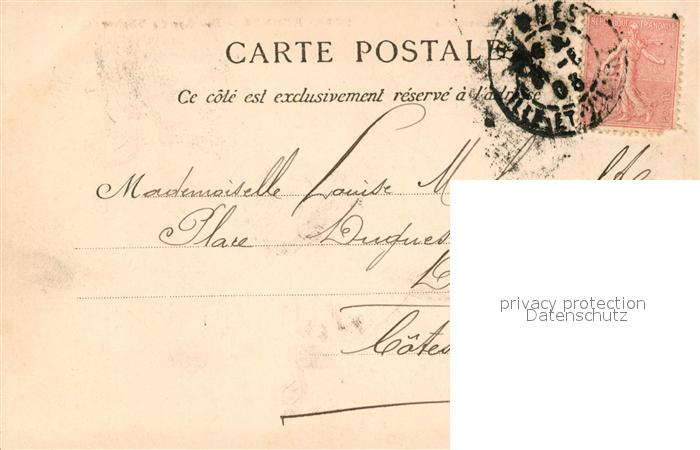 CARTE POSTALE
Ce côté est exclusivement réservé à l'adresse
RÉPUBLIQUE FRANÇAISE
Mademoiselle Louise
Place Dugues
Côtes
privacy protection
Datenschutz